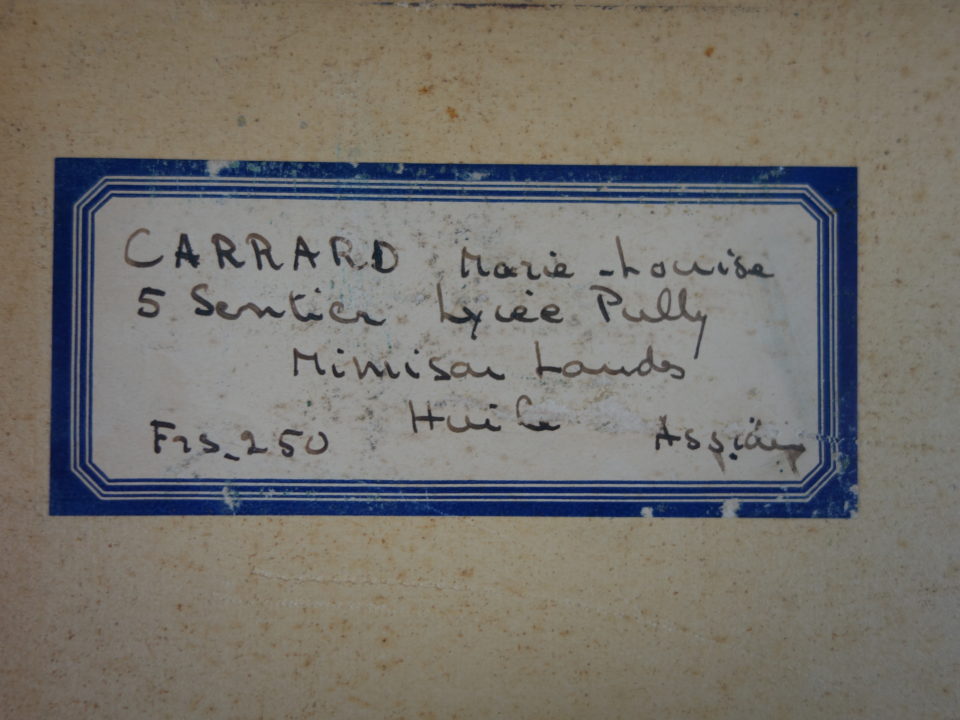 CARRARD Marie-Louise
5 Sentier Lycée Pully
Mimisan Landes
Huile
Frs_250